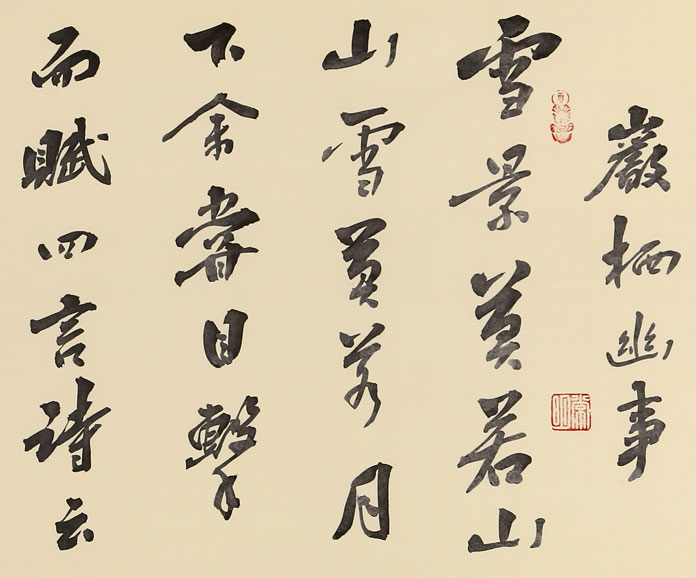 巖栖幽事
雪景莫若山
山雪莫若月
下余嘗目擊
而賦四言詩云